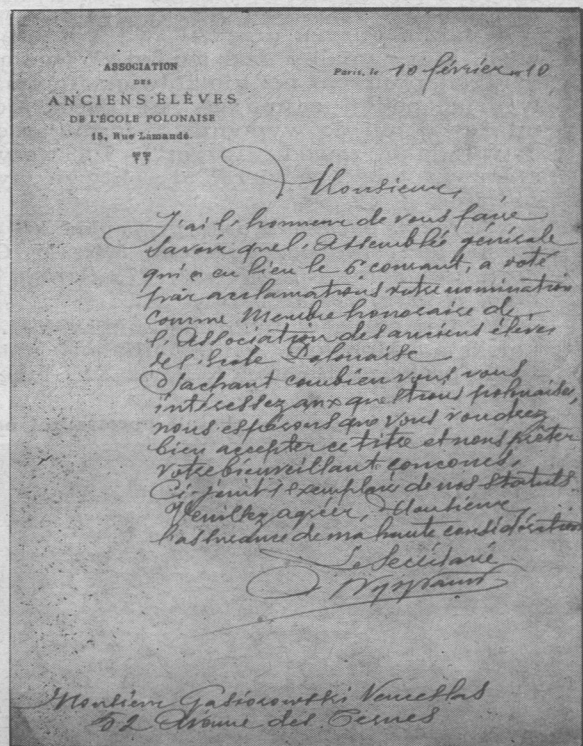 ASSOCIATION
DES
ANCIENS ÉLÈVES
DE L'ÉCOLE POLONAISE
15, Rue Lamandé.
Paris, le 10 février 1910
Monsieur,
J'ai l'honneur de vous faire
savoir que l'Assemblée générale
qui a eu lieu le 6 courant, a voté
par acclamations votre nomination
comme Membre honoraire de
l'Association des anciens élèves
de l'Ecole Polonaise
Sachant combien vous vous
intéressez aux questions polonaises,
nous espérons que vous voudrez
bien accepter ce titre et nous prêter
votre bienveillant concours.
Ci-joint 1 exemplaire de nos statuts
Veuillez agréer, Monsieur
l'assurance de ma haute considération
Le Secrétaire
Monsieur Gasiorowski Venceslas
52 Avenue des Ternes